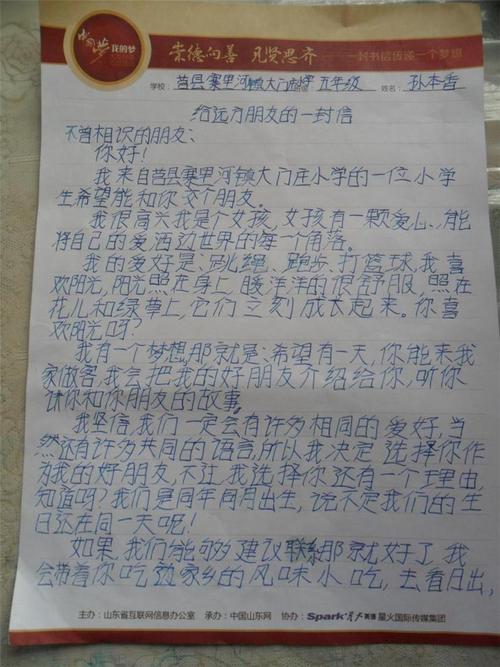 中国梦 我的梦
崇德向善 见贤思齐 一封书信传递一个梦想
学校: 莒县寨里河镇大门庄小学 五年级 姓名: 孙本香
给远方朋友的一封信
不曾相识的朋友:
你好!
我来自莒县寨里河镇大门庄小学的一位小学
生希望能和你交个朋友。
我很高兴我是个女孩,女孩有一颗爱心、能
将自己的爱洒边世界的每一个角落。
我的爱好是:跳绳、跑步、打篮球,我喜
欢阳光,阳光照在身上,暖洋洋的很舒服,照在
花儿和绿草上,它们立刻成长起来。你喜
欢阳光吗?
我有一个梦想那就是:希望有一天,你能来我
家做客,我会把我的好朋友介绍给你,听你
讲你和你朋友的故事,
我坚信,我们一定会有许多相同的爱好,当
然还有许多共同的语言,所以我决定选择你作
为我的好朋友,不过,我选择你还有一个理由,
知道吗?我们是同年同月出生,说不定我们的生
日还在同一天呢!
如果,我们能够建议联系那就好了,我
会带着你吃边家乡的风味小吃,去看日出,
主办:山东省互联网信息办公室 承办:中国山东网 协办:Spark星火英语 星火国际传媒集团